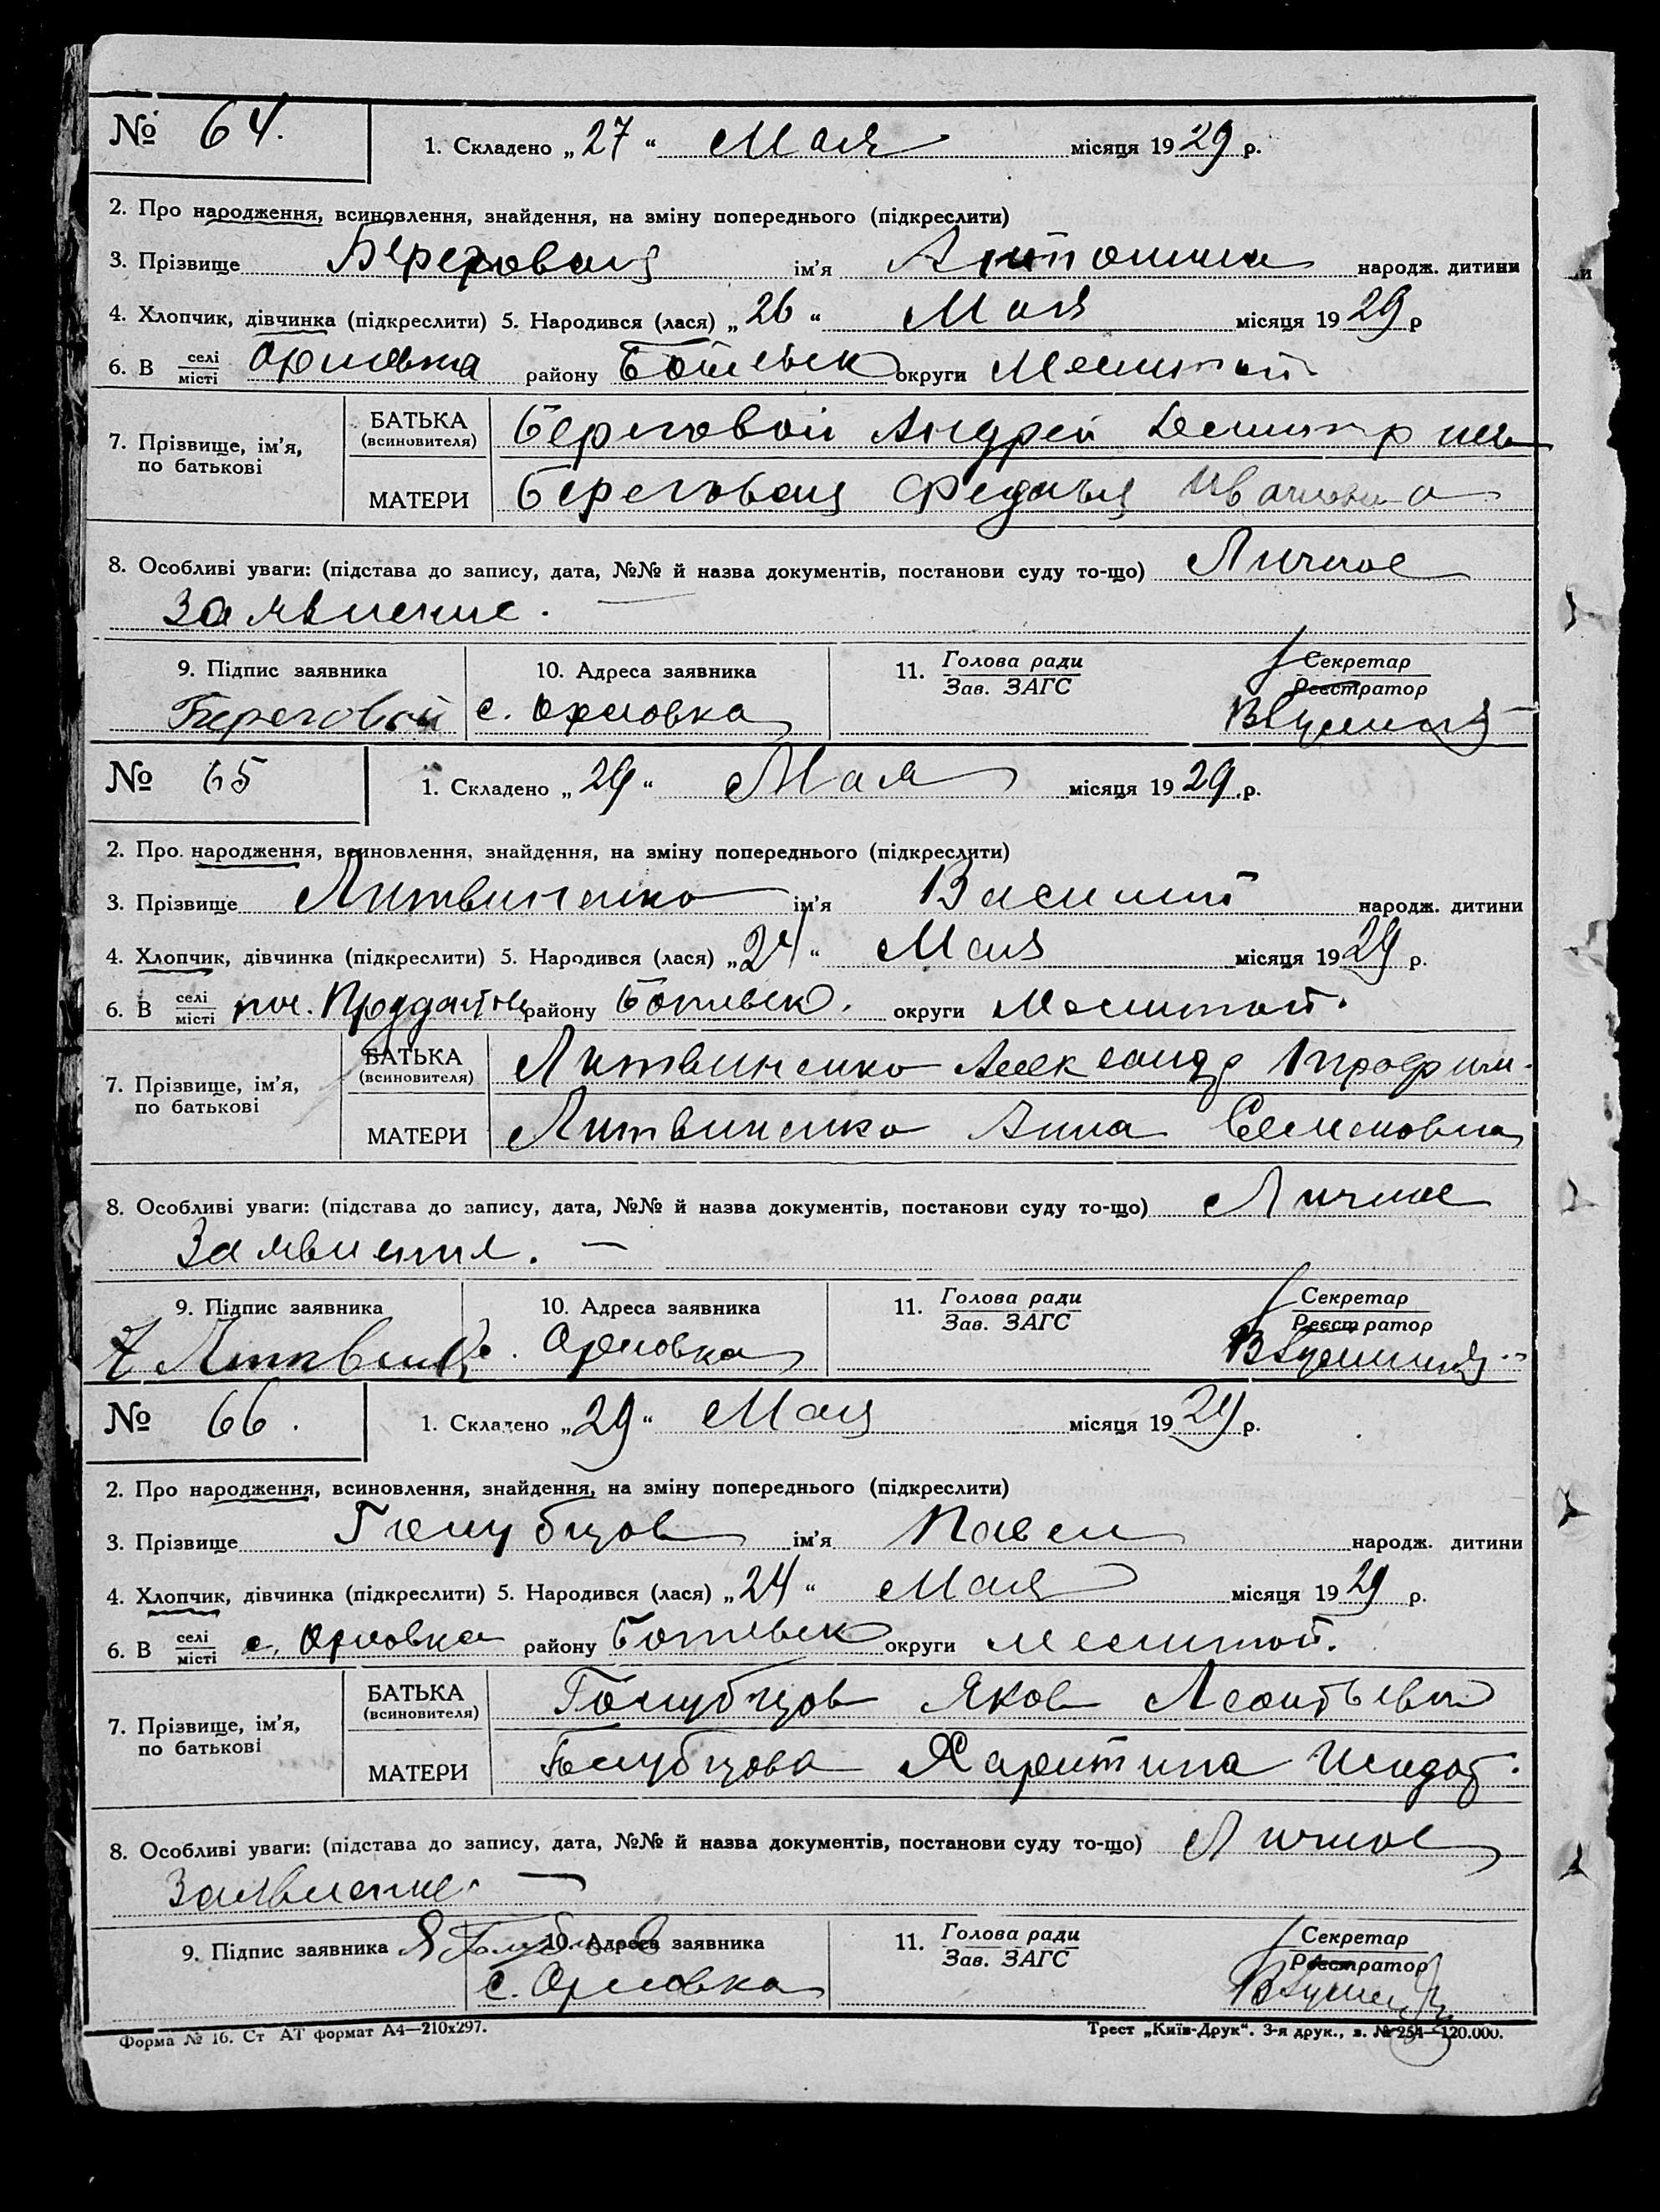 № 64. 1. Складено „27“ Мая місяця 1929 р.
2. Про народження, всиновлення, знайдення, на зміну попереднього (підкреслити)
3. Прізвище Береговая ім'я Антонина народж. дитини
4. Хлопчик, дівчинка (підкреслити) 5. Народився (лася) „26“ Мая місяця 1929 р
6. В селі місті Орловка району Ботьевск округи Мелитоп.
7. Прізвище, ім'я, по батькові
БАТЬКА (всиновителя) Береговой Андрей
МАТЕРИ Береговая Федосья Ивановна
8. Особливі уваги: (підстава до запису, дата, №№ й назва документів, постанови суду то-що) Личное
Заявление. —
9. Підпис заявника 10. Адреса заявника 11. Голова ради Секретар
Зав. ЗАГС Реєстратор
Береговой с. Орловка
№ 65 1. Складено „29“ Мая місяця 1929 р.
2. Про народження, всиновлення, знайдення, на зміну попереднього (підкреслити)
3. Прізвище Литвиненко ім'я Василий народж. дитини
4. Хлопчик, дівчинка (підкреслити) 5. Народився (лася) „24“ Мая місяця 1929 р.
6. В селі місті району Ботьевск. округи Мелитоп.
7. Прізвище, ім'я, по батькові
БАТЬКА (всиновителя) Литвиненко Александр
МАТЕРИ Литвиненко Анна Семеновна
8. Особливі уваги: (підстава до запису, дата, №№ й назва документів, постанови суду то-що) Личное
Заявление. —
9. Підпис заявника 10. Адреса заявника 11. Голова ради Секретар
Зав. ЗАГС Реєстратор
с. Орловка
№ 66. 1. Складено „29“ Мая місяця 1929 р.
2. Про народження, всиновлення, знайдення, на зміну попереднього (підкреслити)
3. Прізвище Голубцов ім'я Павел народж. дитини
4. Хлопчик, дівчинка (підкреслити) 5. Народився (лася) „24“ Мая місяця 1929 р.
6. В селі місті с. Орловка району Ботьевск округи Мелитоп.
7. Прізвище, ім'я, по батькові
БАТЬКА (всиновителя) Голубцов Яков Леонтьевич
МАТЕРИ Голубцова Харитина
8. Особливі уваги: (підстава до запису, дата, №№ й назва документів, постанови суду то-що) Личное
Заявление. —
9. Підпис заявника Я Голубцов 10. Адреса заявника 11. Голова ради Секретар
Зав. ЗАГС Реєстратор
с. Орловка
Форма № 16. Ст АТ формат А4—210х297. Трест „Київ-Друк“. 3-я друк., з. № 254—120.000.